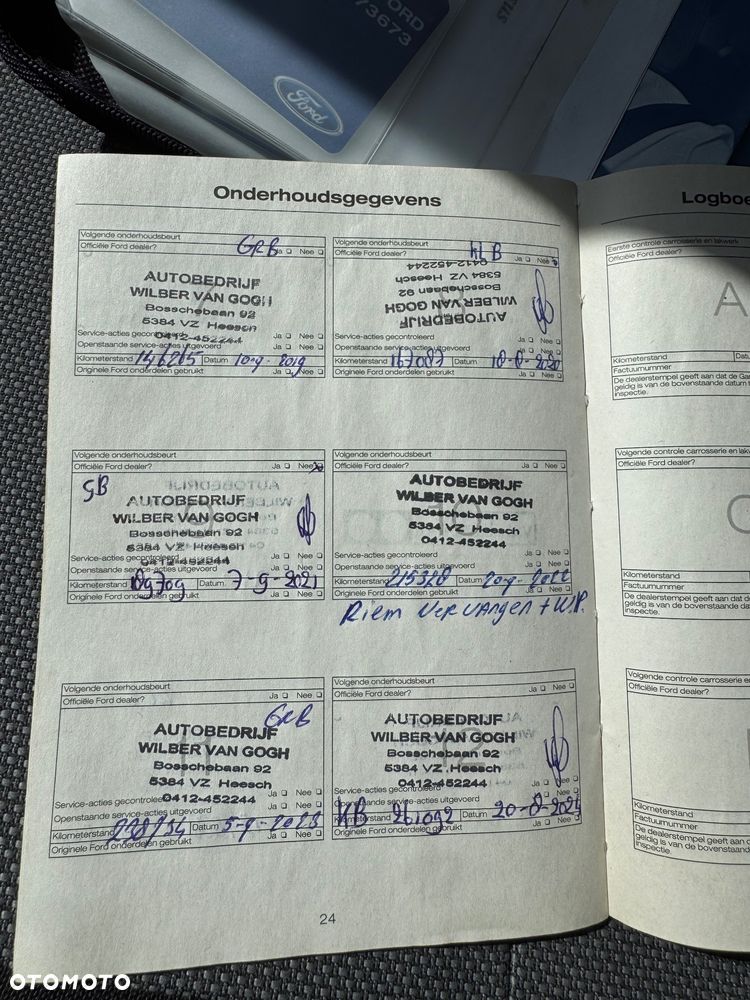 FORD
73673
Ford
Onderhoudsgegevens
Volgende onderhoudsbeurt
Officiële Ford dealer? Ja Nee
GRB
AUTOBEDRIJF
WILBER VAN GOGH
Bosschebaan 92
5384 VZ Heesch
0412-452244
Service-acties gecontroleerd Ja Nee
Openstaande service-acties uitgevoerd Ja Nee
Kilometerstand 146265 Datum 10-9-2019
Originele Ford onderdelen gebruikt Ja Nee
Volgende onderhoudsbeurt
Officiële Ford dealer? Ja Nee
AUTOBEDRIJF
WILBER VAN GOGH
Bosschebaan 92
5384 VZ Heesch
0412-452244
Service-acties gecontroleerd Ja Nee
Openstaande service-acties uitgevoerd Ja Nee
Kilometerstand 167087 Datum 18-8-2020
Originele Ford onderdelen gebruikt Ja Nee
Volgende onderhoudsbeurt
Officiële Ford dealer? Ja Nee
GB
AUTOBEDRIJF
WILBER VAN GOGH
Bosschebaan 92
5384 VZ Heesch
0412-452244
Service-acties gecontroleerd Ja Nee
Openstaande service-acties uitgevoerd Ja Nee
Kilometerstand Datum 7-9-2021
Originele Ford onderdelen gebruikt Ja Nee
Volgende onderhoudsbeurt
Officiële Ford dealer? Ja Nee
AUTOBEDRIJF
WILBER VAN GOGH
Bosschebaan 92
5384 VZ Heesch
0412-452244
Service-acties gecontroleerd Ja Nee
Openstaande service-acties uitgevoerd Ja Nee
Kilometerstand 215328 Datum 20-9-2022
Originele Ford onderdelen gebruikt Ja Nee
Riem vervangen + W.P.
Volgende onderhoudsbeurt
Officiële Ford dealer? Ja Nee
GRB
AUTOBEDRIJF
WILBER VAN GOGH
Bosschebaan 92
5384 VZ Heesch
0412-452244
Service-acties gecontroleerd Ja Nee
Openstaande service-acties uitgevoerd Ja Nee
Kilometerstand 238734 Datum 5-9-2023
Originele Ford onderdelen gebruikt Ja Nee
Volgende onderhoudsbeurt
Officiële Ford dealer? Ja Nee
AUTOBEDRIJF
WILBER VAN GOGH
Bosschebaan 92
5384 VZ Heesch
0412-452244
Service-acties gecontroleerd Ja Nee
Openstaande service-acties uitgevoerd Ja Nee
KB
Kilometerstand 261092 Datum 20-8-2024
Originele Ford onderdelen gebruikt Ja Nee
24
Logboe
Eerste controle carrosserie en lakwerk
Officiële Ford dealer?
A
Kilometerstand Dat
Factuurnummer
De dealerstempel geeft aan dat de Ga
geldig is van de bovenstaande datum t
inspectie.
Volgende controle carrosserie en lak
Officiële Ford dealer?
C
Kilometerstand
Factuurnummer
De dealerstempel geeft aan dat de
geldig is van de bovenstaande dat
inspectie.
Volgende controle carrosserie en
Officiële Ford dealer?
Kilometerstand
Factuurnummer
De dealerstempel geeft aan d
geldig is van de bovenstaand
inspectie.
OTOMOTO